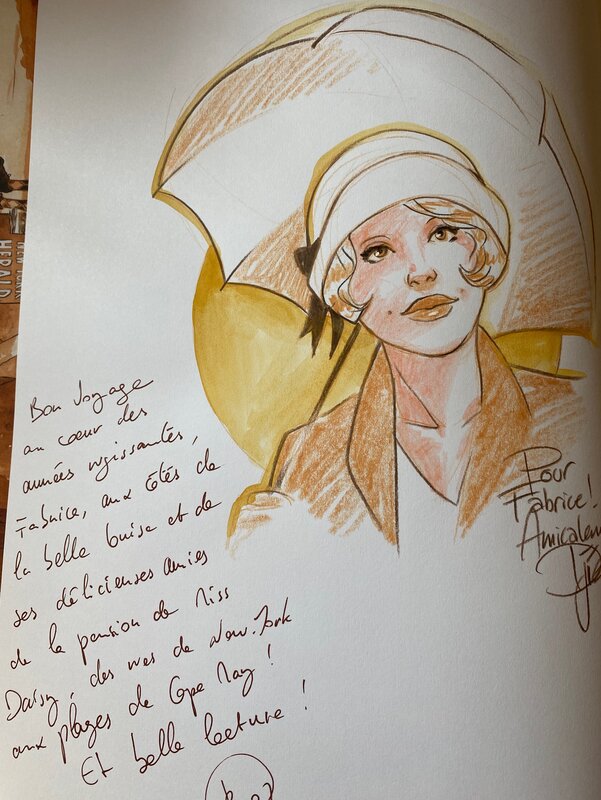 NEW YORK
HERALD
Bon Voyage
au cœur des
années rugissantes,
Fabrice, aux côtés de
la belle Louise et de
ses délicieuses amies
de la pension de Miss
Daisy, des rues de New-York
aux plages de Cape May !
Et belle lecture !
Pour
Fabrice !
Amicalem